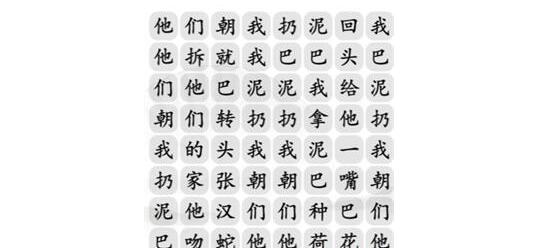 他们朝我扔泥回我
他拆就我巴巴头巴
们他巴泥泥我给泥
朝们转扔扔拿他扔
我的头我我泥一我
扔家张朝朝巴嘴朝
泥他汉们们种巴们
巴吻蛇他他荷花他